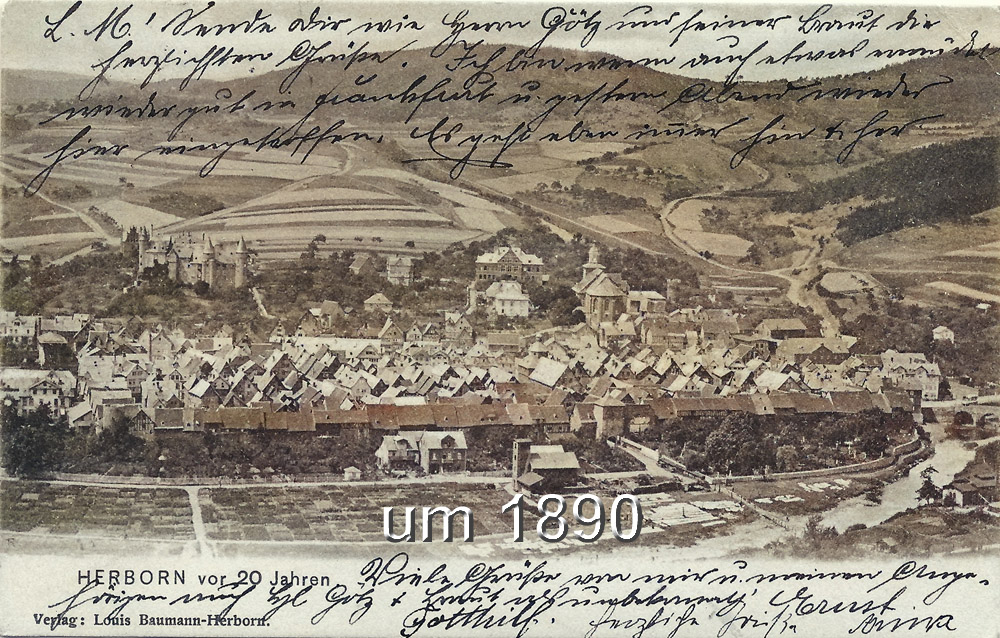 L. M! Sende Dir wie Herrn Götz und seiner Braut die
herzlichsten Grüße. Ich bin wenn auch etwas
wieder gut in Frankfurt u. gestern Abend wieder
hier eingetroffen. Es geht eben immer hin & her
um 1890
HERBORN vor 20 Jahren
Viele Grüße von mir u. meinen Ange-
hörigen auch Götz & Braut unbekannt
Verlag: Louis Baumann-Herborn.
Gotthilf. herzliche Grüße Ernst
Anna